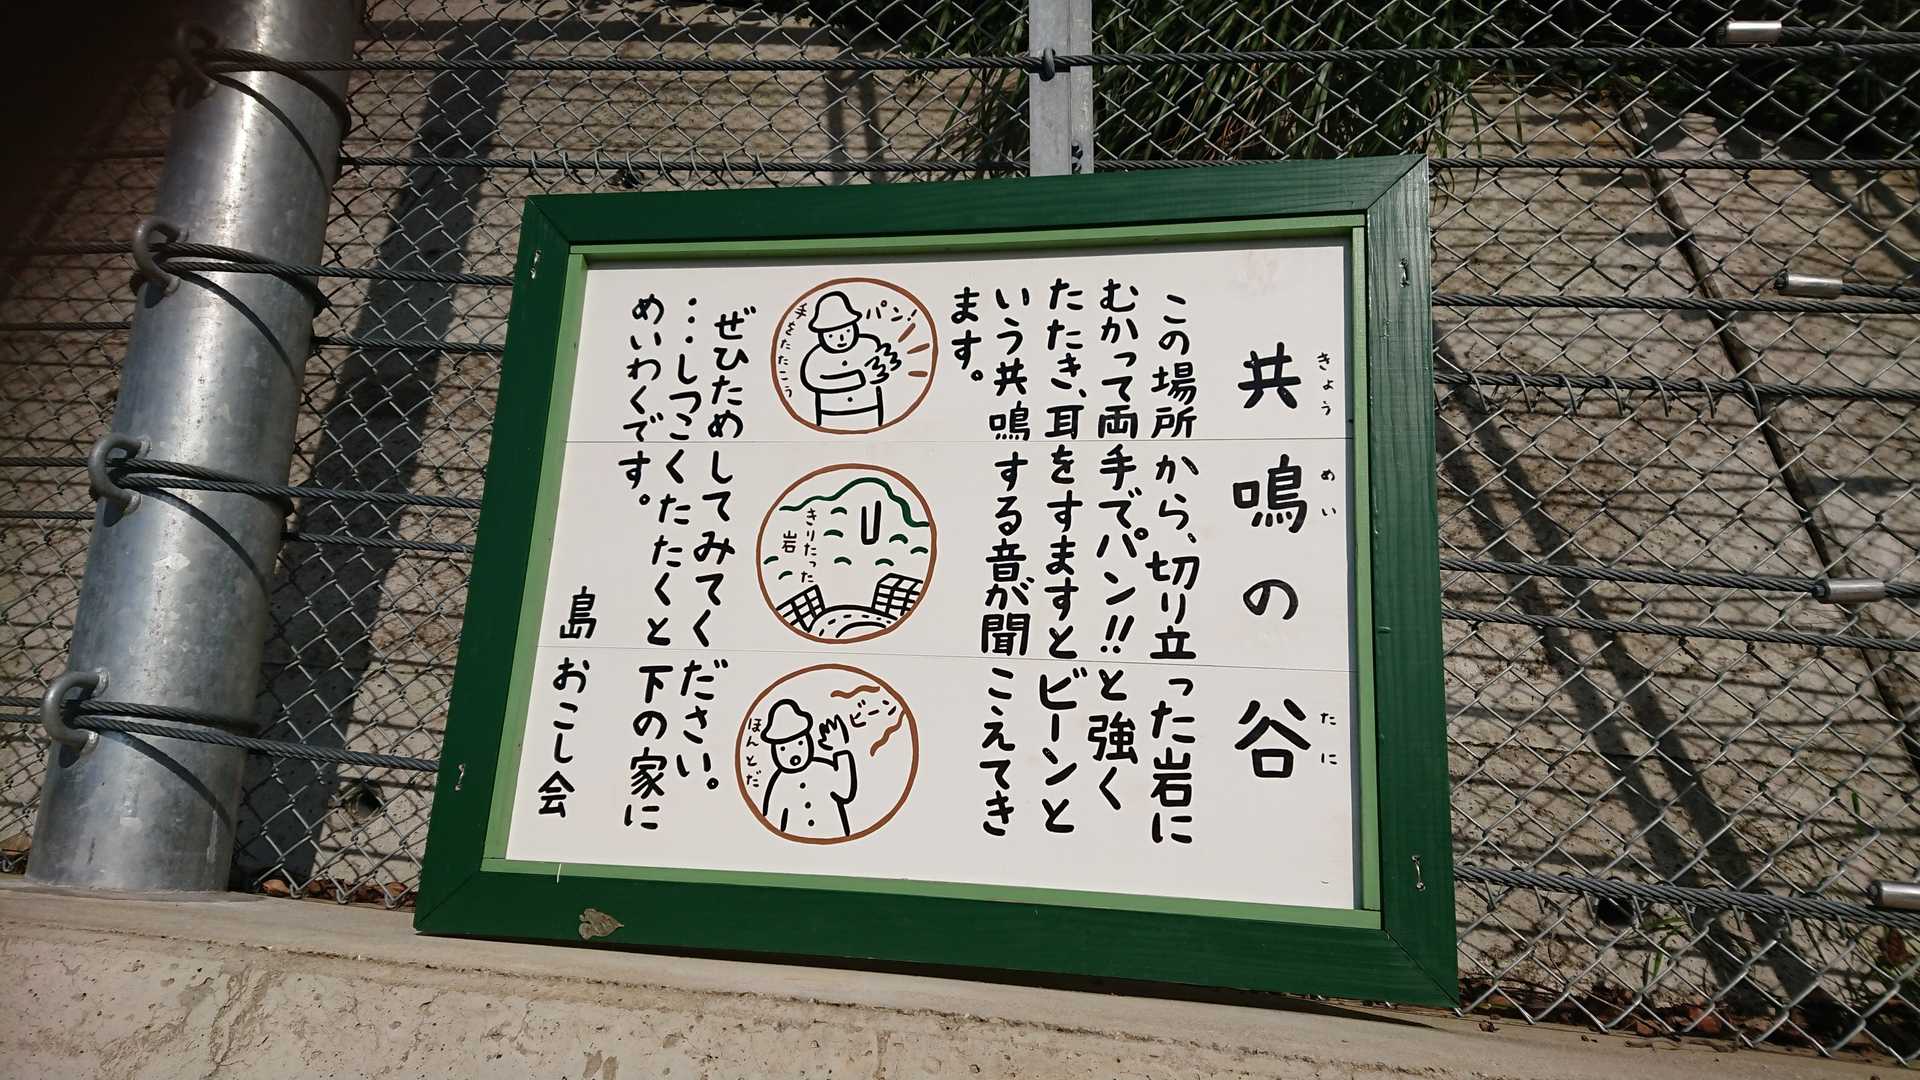 共鳴の谷
きょう
めい
たに
この場所から、切り立った岩に
むかって両手でパン!!と強く
たたき、耳をすますとビーンと
いう共鳴する音が聞こえてき
ます。
パン!
手をたたこう
きりたった
岩
ビーン
ほんとだ
ぜひためしてみてください。
・・・しつこくたたくと下の家に
めいわくです。
島おこし会